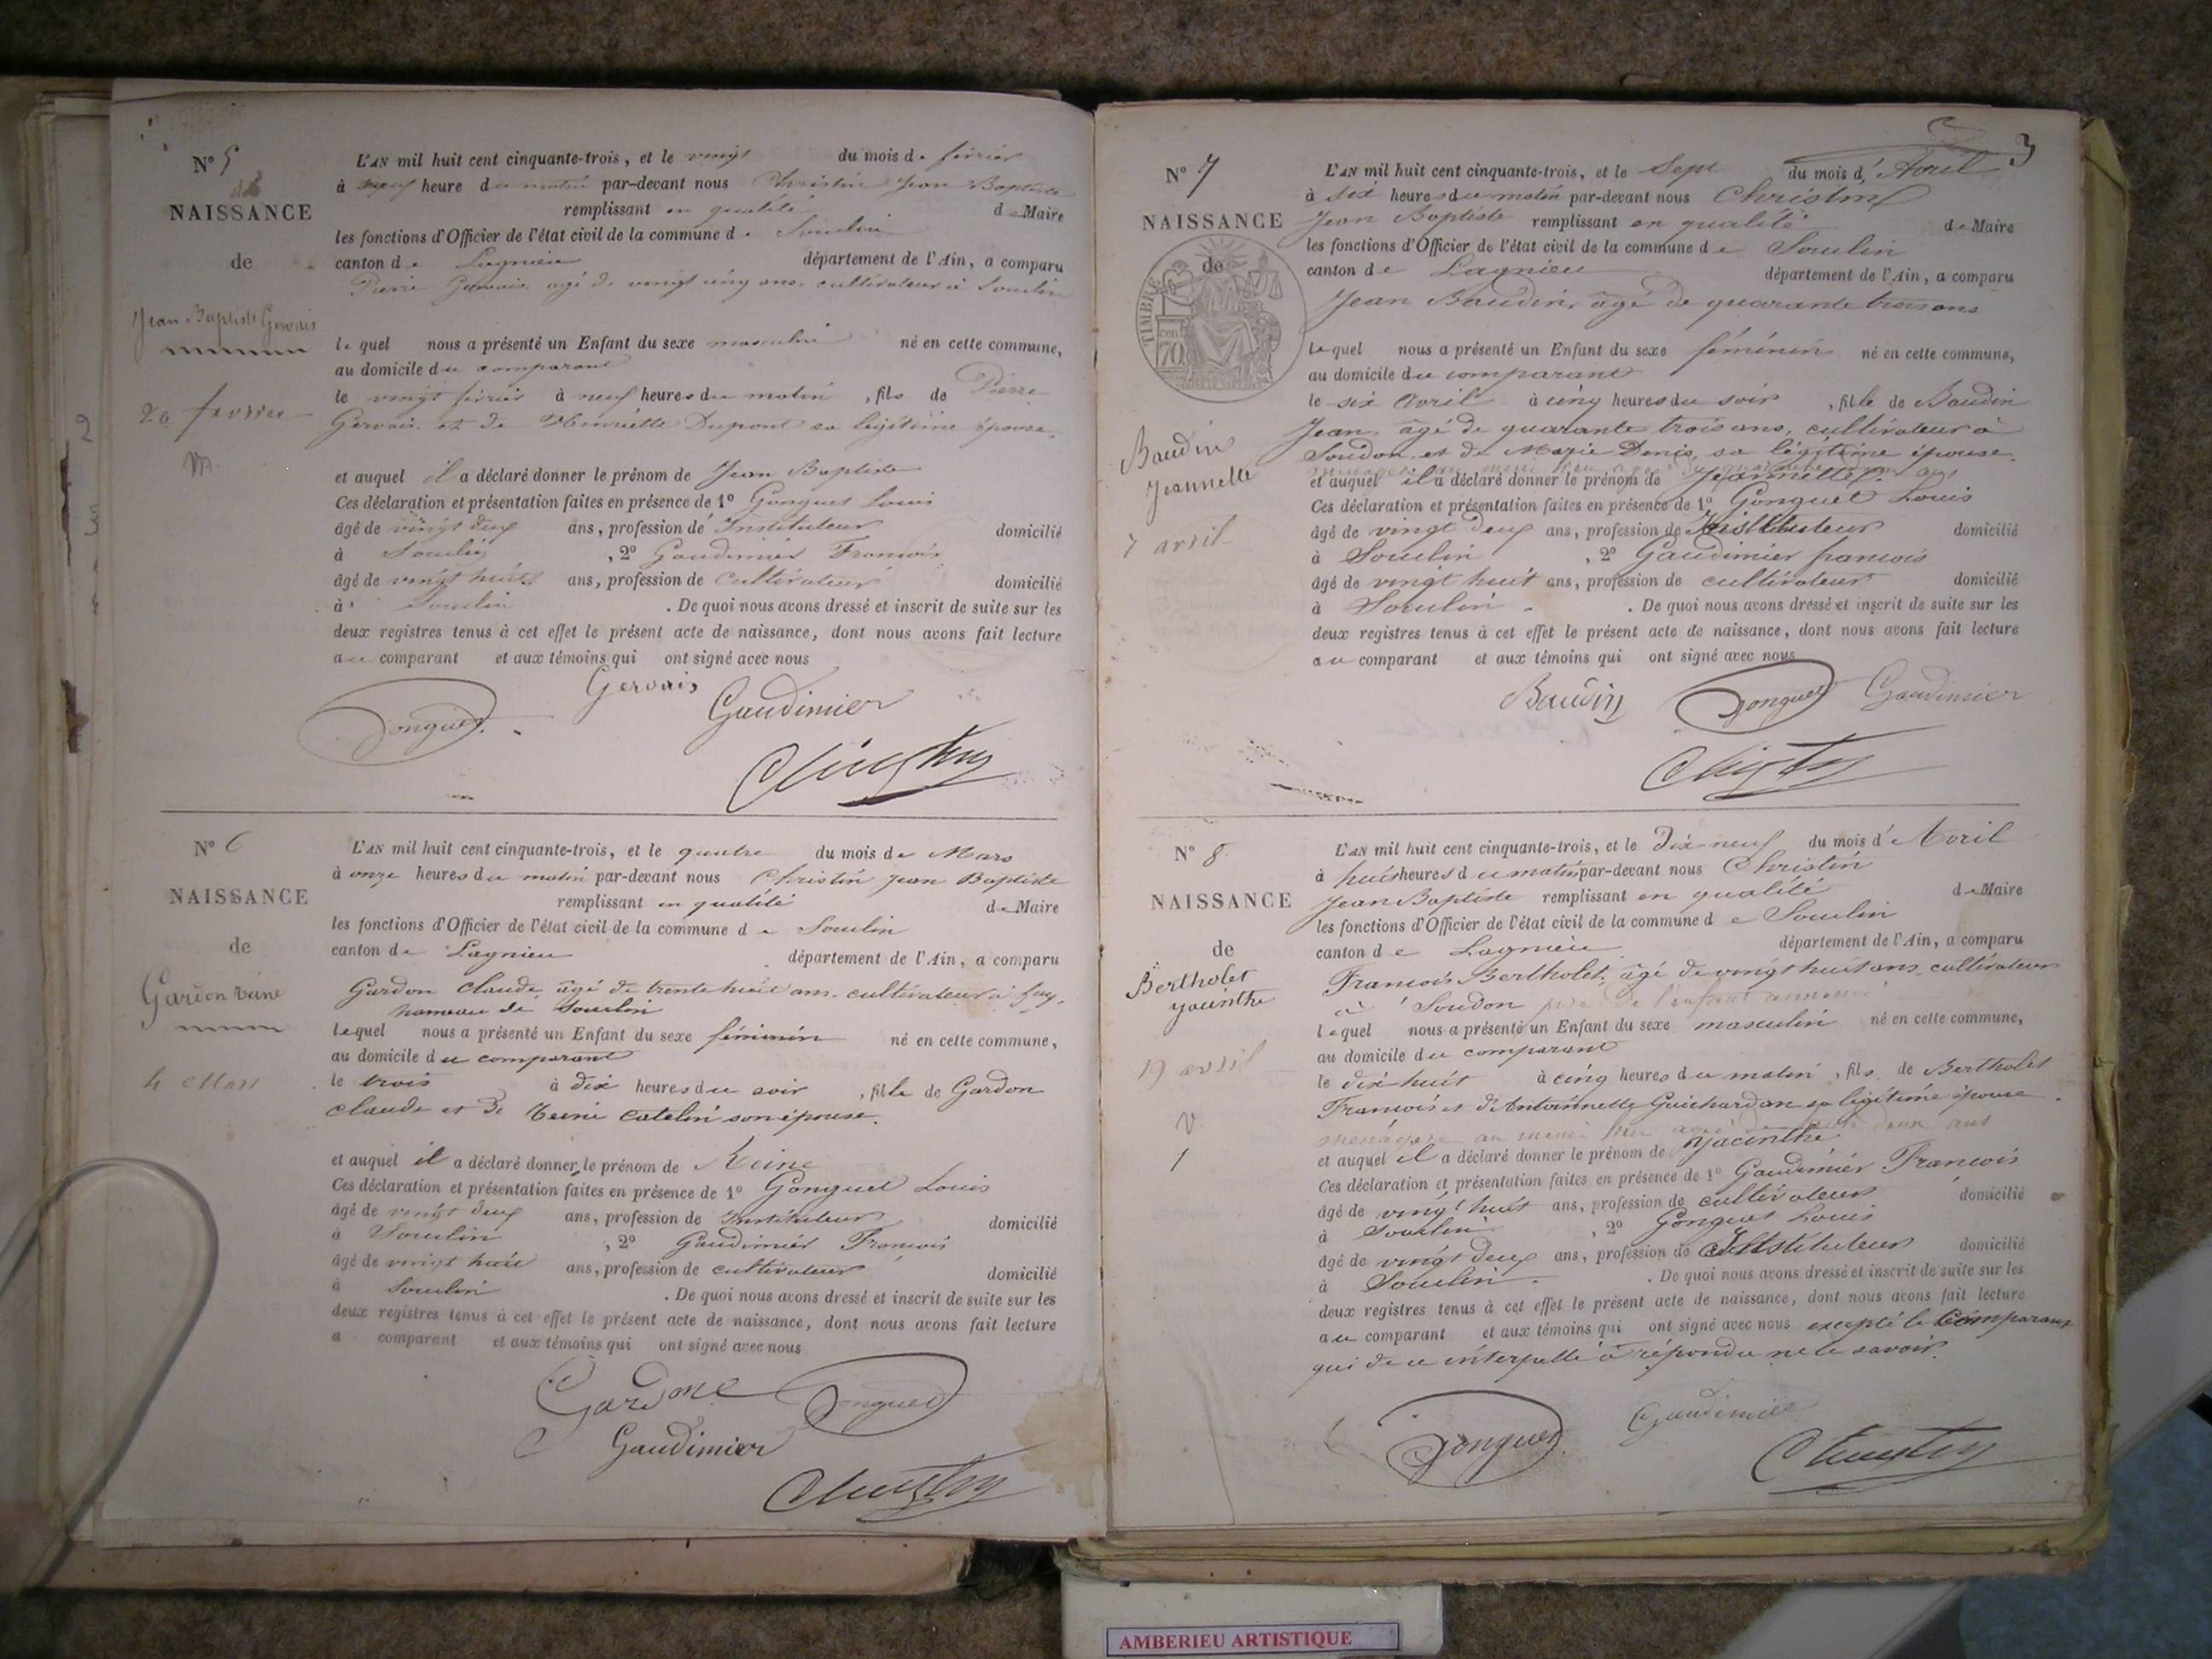 N° 5
NAISSANCE
de
Jean Baptiste Gervais
20 fevrier
M.
L'AN mil huit cent cinquante-trois, et le vingt du mois de février
à neuf heure du matin par-devant nous Christin Jean Baptiste
remplissant en qualité de Maire
les fonctions d'Officier de l'état civil de la commune de Souclin
canton de Lagnieu département de l'Ain, a comparu
Pierre Gervais, agé de vingt cinq ans, cultivateur à Souclin
lequel nous a présenté un Enfant du sexe masculin né en cette commune,
au domicile du comparant
le vingt février à neuf heures du matin, fils de Pierre
Gervais et de Henriette Dupont sa légitime épouse.
et auquel il a déclaré donner le prénom de Jean Baptiste
Ces déclaration et présentation faites en présence de 1° Gonguet Louis
âgé de vingt deux ans, profession de Instituteur domicilié
à Souclin, 2° Gaudimier Francois
âgé de vingt huit ans, profession de Cultivateur domicilié
à Souclin. De quoi nous avons dressé et inscrit de suite sur les
deux registres tenus à cet effet le présent acte de naissance, dont nous avons fait lecture
au comparant et aux témoins qui ont signé avec nous
Gervais
Gonguet Gaudimier
Christin
N° 6
NAISSANCE
de
Gardon reine
4 Mars
L'AN mil huit cent cinquante-trois, et le quatre du mois de Mars
à onze heures du matin par-devant nous Christin Jean Baptiste
remplissant en qualité de Maire
les fonctions d'Officier de l'état civil de la commune de Souclin
canton de Lagnieu département de l'Ain, a comparu
Gardon Claude, âgé de trente huit ans, cultivateur à fay,
hameau de Souclin
lequel nous a présenté un Enfant du sexe féminin né en cette commune,
au domicile du comparant
le trois à dix heures du soir, fille de Gardon
Claude et de Reine Catelin son épouse.
et auquel il a déclaré donner le prénom de Reine
Ces déclaration et présentation faites en présence de 1° Gonguet Louis
âgé de vingt deux ans, profession de Instituteur domicilié
à Souclin, 2° Gaudimier Francois
âgé de vingt huit ans, profession de cultivateur domicilié
à Souclin. De quoi nous avons dressé et inscrit de suite sur les
deux registres tenus à cet effet le présent acte de naissance, dont nous avons fait lecture
a comparant et aux témoins qui ont signé avec nous
Gardone Gonguet
Gaudimier
Christin
3
N° 7
NAISSANCE
de
TIMBRE
cen
70
Baudin
Jeannette
7 avril
L'AN mil huit cent cinquante-trois, et le Sept du mois d'Avril
à six heures du matin par-devant nous Christin
Jean Baptiste remplissant en qualité de Maire
les fonctions d'Officier de l'état civil de la commune de Souclin
canton de Lagnieu département de l'Ain, a comparu
Jean Baudin, âgé de quarante trois ans
lequel nous a présenté un Enfant du sexe féminin né en cette commune,
au domicile du comparant
le six Avril à cinq heures du soir, fille de Baudin
Jean, âgé de quarante trois ans, cultivateur à
Soudon et de Marie Denis, sa légitime épouse.
et auquel il a déclaré donner le prénom de Jeannette.
Ces déclaration et présentation faites en présence de 1° Gonguet Louis
âgé de vingt deux ans, profession de Instituteur domicilié
à Souclin, 2° Gaudimier francois
âgé de vingt huit ans, profession de cultivateur domicilié
à Souclin. De quoi nous avons dressé et inscrit de suite sur les
deux registres tenus à cet effet le présent acte de naissance, dont nous avons fait lecture
au comparant et aux témoins qui ont signé avec nous
Baudin Gonguet Gaudimier
Christin
N° 8
NAISSANCE
de
Bertholet
yacinthe
19 avril
V.
1
L'AN mil huit cent cinquante-trois, et le Dix-neuf du mois d'Avril
à huit heures du matin par-devant nous Christin
Jean Baptiste remplissant en qualité de Maire
les fonctions d'Officier de l'état civil de la commune de Souclin
canton de Lagnieu département de l'Ain, a comparu
Francois Bertholet, âgé de vingt huit ans, cultivateur
à Soudon père de l'enfant
lequel nous a présenté un Enfant du sexe masculin né en cette commune,
au domicile du comparant
le dix huit à cinq heures du matin, fils de Bertholet
Francois et d'Antoinnette Guichardan sa légitime épouse.
menagere au meme lieu agée de deux ans
et auquel il a déclaré donner le prénom de Yacinthe
Ces déclaration et présentation faites en présence de 1° Gaudimier Francois
âgé de vingt huit ans, profession de cultivateur domicilié
à Souclin, 2° Gonguet Louis
âgé de vingt deux ans, profession de Instituteur domicilié
à Souclin. De quoi nous avons dressé et inscrit de suite sur les
deux registres tenus à cet effet le présent acte de naissance, dont nous avons fait lecture
au comparant et aux témoins qui ont signé avec nous excepté le Comparant
qui de ce interpellé à répondu ne le savoir.
Gonguet Gaudimier
Christin
AMBERIEU ARTISTIQUE